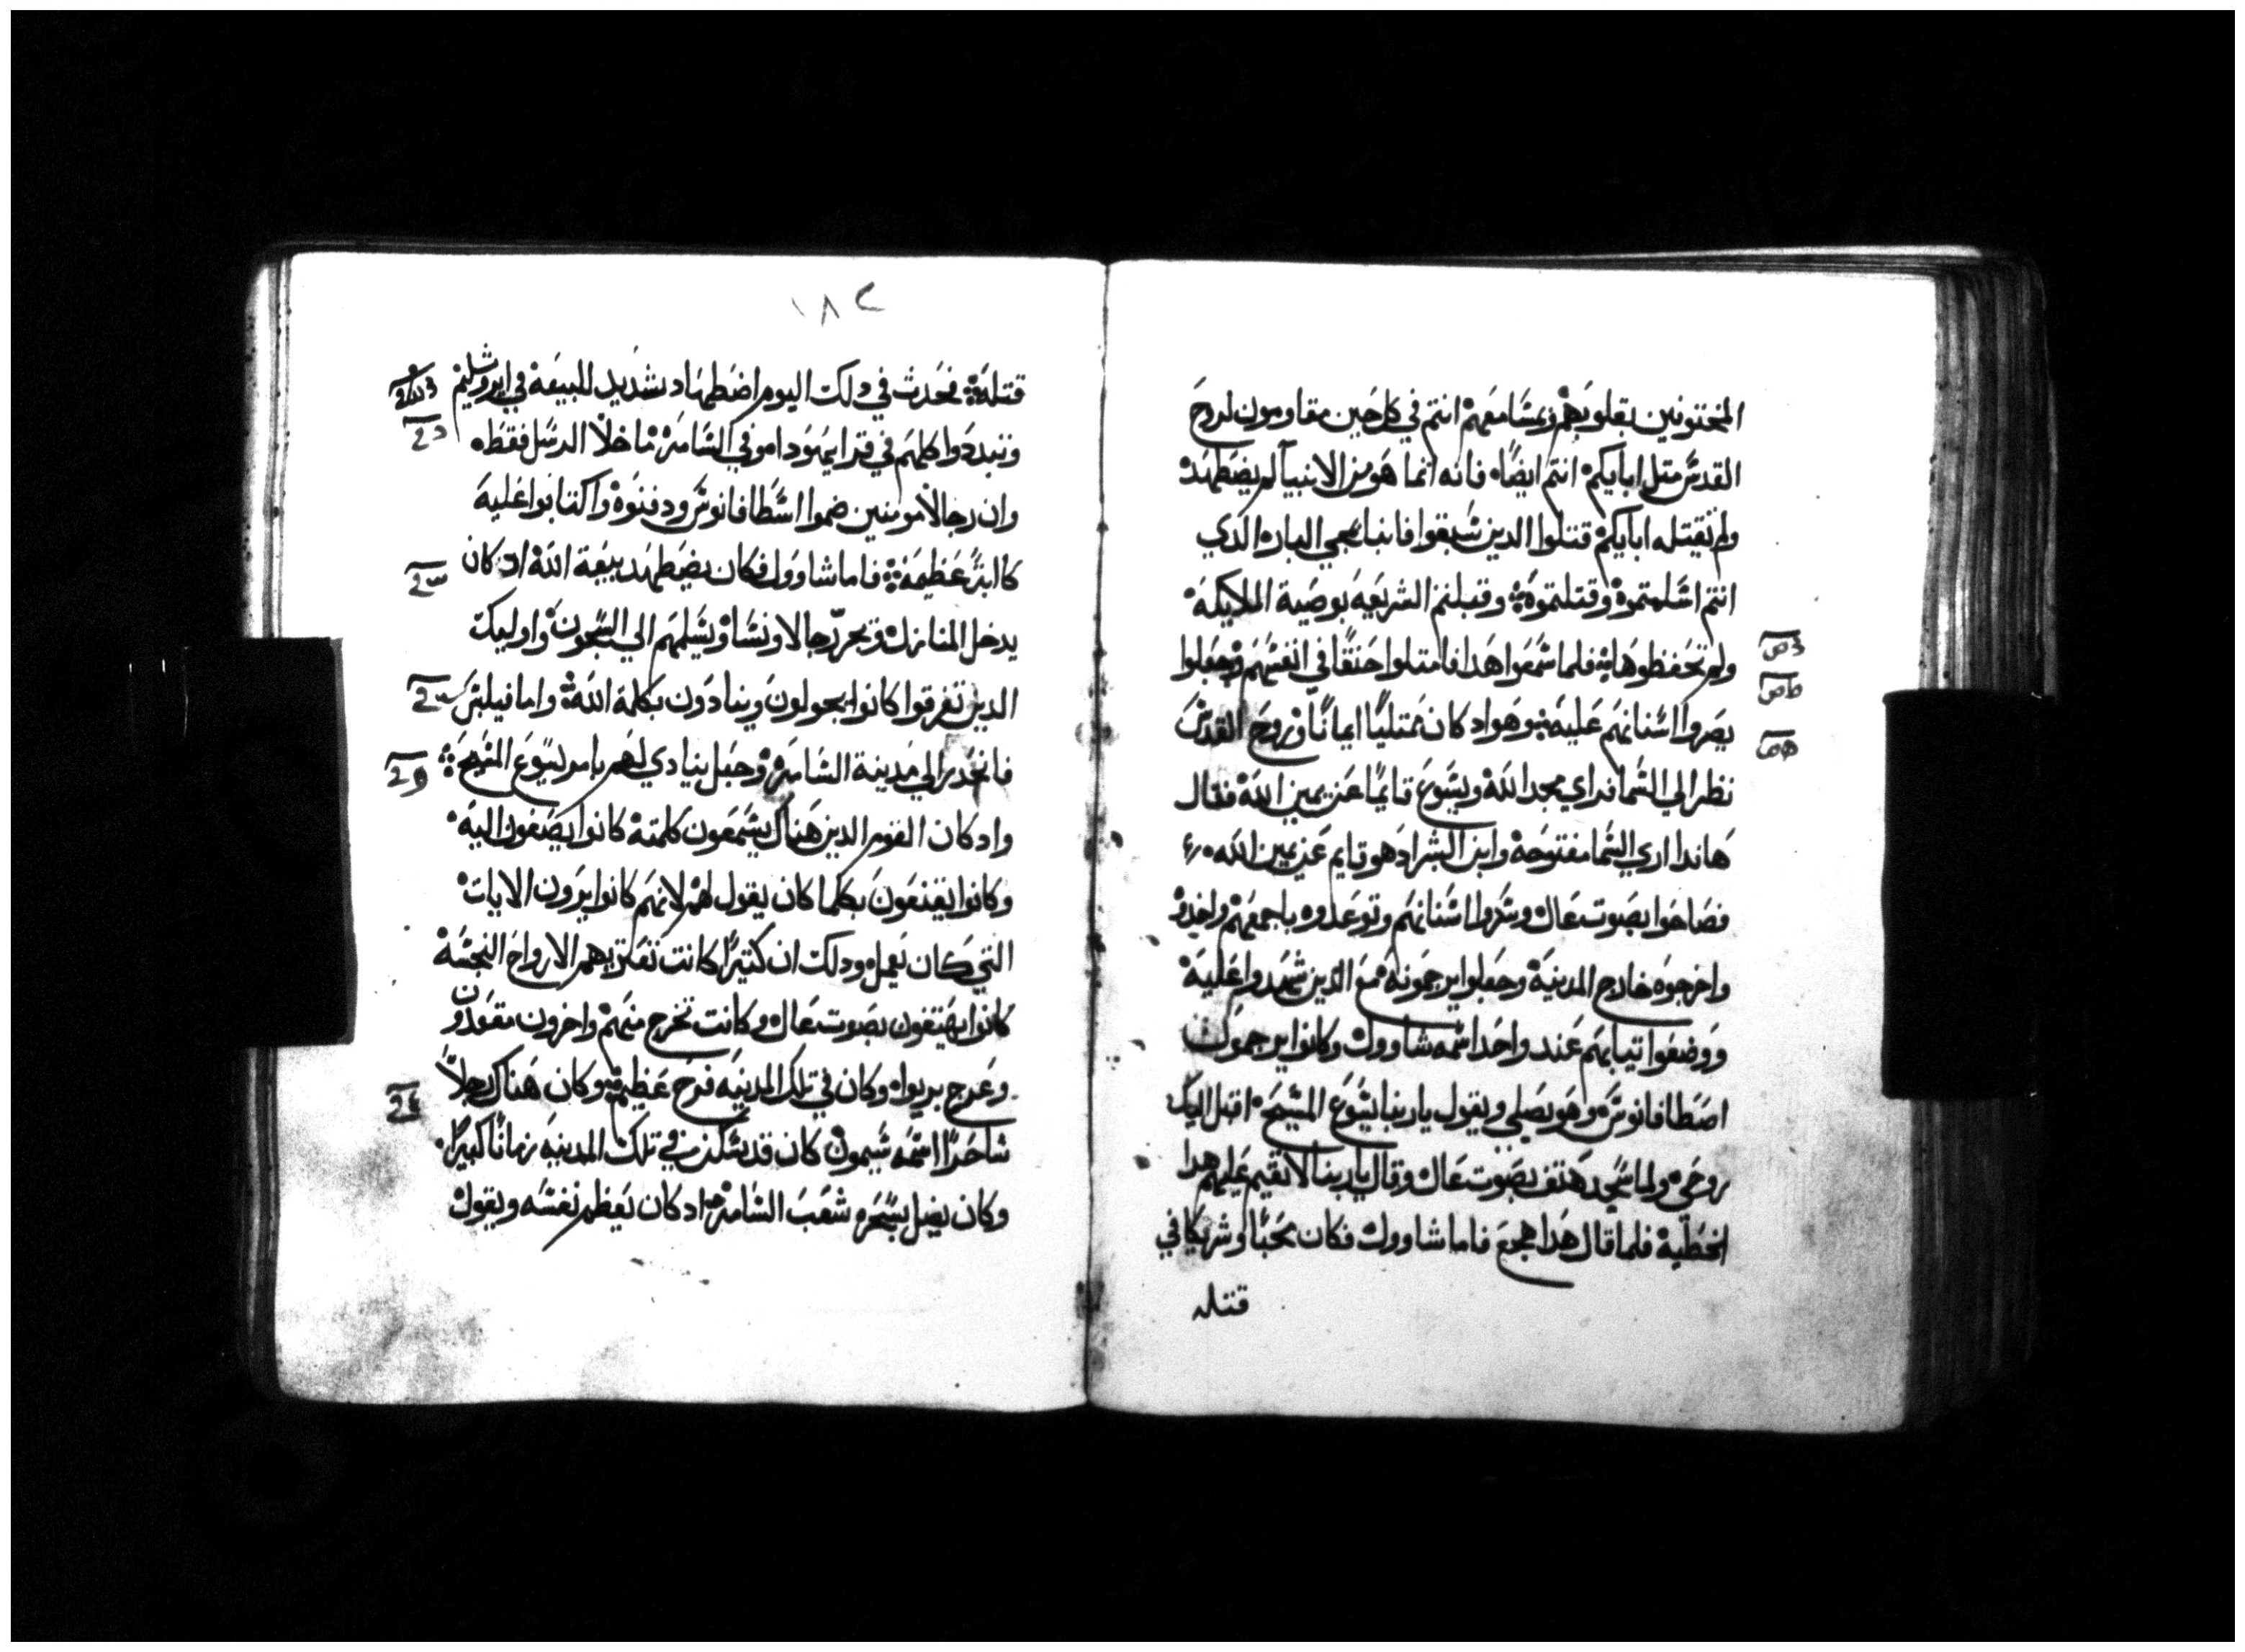 المختونين بقلوبهم وبمسامعهم انتم في كل حين مقاومون لروح
القدس متل ابايكم انتم ايضًا فانه انما هو من الانبيا لم يضطهده
ولم تقتله ابايكم قتلوا الدين سبقوا فانبا بمجي البار الدي
انتم اسلمتموه وقتلتموه وقبلتم الشريعه بوصية الملايكة
ولم تحفظوها فلما سمعوا هدا فامتلوا حنقًا في انفسهم وجعلوا
يصروا اسنانهم عليه وهو اد كان ممتليًا ايمانًا وروح القدس
نظر الي السما فراي مجد الله ويسوع قايمًا عن يمين الله فقال
هاندا اري السما مفتوحة وابن البشر اد هو قايم عن يمين الله
فصاحوا بصوت عال وسدوا اسنانهم وتوعدوه باجمعهم واخدوه
واخرجوه خارج المدينة وجعلوا يرجمونه مع الدين شهدوا عليه
ووضعوا تيابهم عند واحد اسمه شاوول وكانوا يرجمون
اصطافانوس وهو يصلي ويقول ياربنا يسوع المسيح اقبل اليك
روحي ولما سجد هتف بصوت عال وقال ياربنا لا تقيم عليهم هدا
الخطية فلما قال هدا هجع فاما شاوول فكان محبًا وشريكًا في
قتله
١٨٢
قتله فحدث في دلك اليوم اضطهاد شديد للبيعة في ايروشليم
وتبددوا كلهم في قرا يهودا وفي السامره ما خلا الرسل فقط
وان رجالا مومنين ضموا اسطافانوس ودفنوه واكتابوا عليه
كابة عظيمة فاما شاوول فكان يضطهد بيعة الله اد كان
يدخل المنازل ويجر رجالا ونسا ويسلمهم الي السجون واوليك
الدين تفرقوا كانوا يجولون وينادون بكلمة الله واما فيلبس
فانحدر الي مدينة السامره وجعل ينادي لهم بامر يسوع المسيح
واد كان القوم الدين هناك يسمعون كلمته كانوا يصغون اليه
وكانوا يقنعون بكلما كان يقول لهم لانهم كانوا يرون الايات
التي كان يعمل ودلك ان كتيرًا كانت تعتريهم الارواح النجسة
كانوا يهتفون بصوت عال وكانت تخرج منهم واخرون مقعدون
وعرج بريوا وكان في تلك المدينه فرح عظيم وكان هناك رجلاً
ساحرًا اسمه سيمون كان قد سكن في تلك المدينه زمانًا كبيرًا
وكان يضل بسحره شعب السامره اد كان يعظم نفسه ويقول